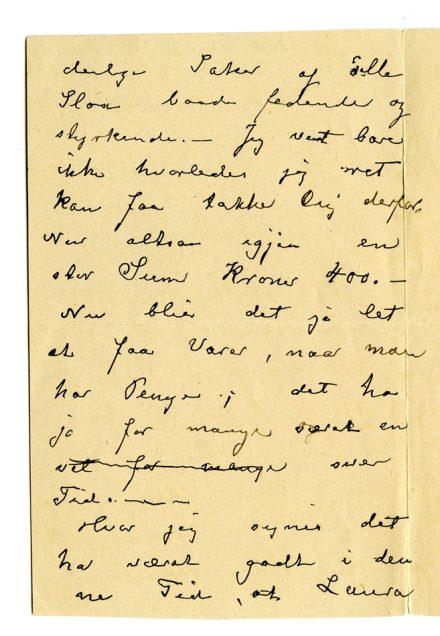 deilige Saker af alle
Slag baade fedende og
styrkende. – Jeg vet bare
ikke hvorledes jeg ret
kan faa takke Dig derfor.
Nu altsaa igjen en
stor Sum Kroner 400. –
Nu blir det jo let
at faa Varer, naar man
har Penge; det har
jo for mange været en
vet for mange svær
Tid. – – –
Hvor jeg synes det
har været godt i den
ne Tid, at Laura